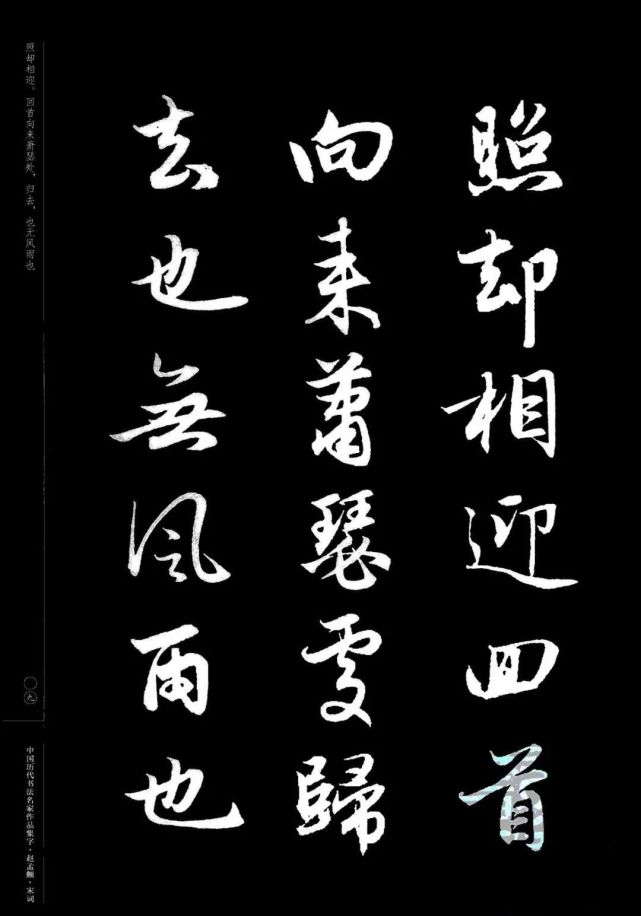 照却相迎回首
向来蕭瑟處歸
去也無風雨也
照却相迎。回首向来萧瑟处，归去，也无风雨也
〇九
中国历代书法名家作品集字·赵孟頫·宋词